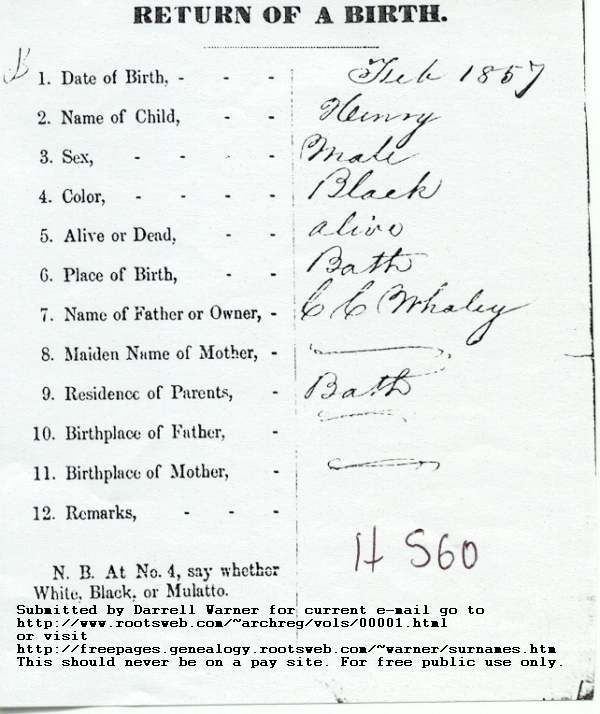 RETURN OF A BIRTH.
1. Date of Birth, - - - Feb 1857
2. Name of Child, - - Henry
3. Sex, - - - - Male
4. Color, - - - - Black
5. Alive or Dead, - - alive
6. Place of Birth, - - Bath
7. Name of Father or Owner, - C C Whaley
8. Maiden Name of Mother, -
9. Residence of Parents, - Bath
10. Birthplace of Father, -
11. Birthplace of Mother, -
12. Remarks, - - -
H 560
N. B. At No. 4, say whether
White, Black, or Mulatto.
Submitted by Darrell Warner for current e-mail go to
http://www.rootsweb.com/~archreg/vols/00001.html
or visit
http://freepages.genealogy.rootsweb.com/~warner/surnames.htm
This should never be on a pay site. For free public use only.